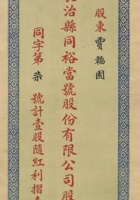 股東賈輻圃
治縣同裕當號股份有限公司股
同字第柒號計壹股隨紅利摺